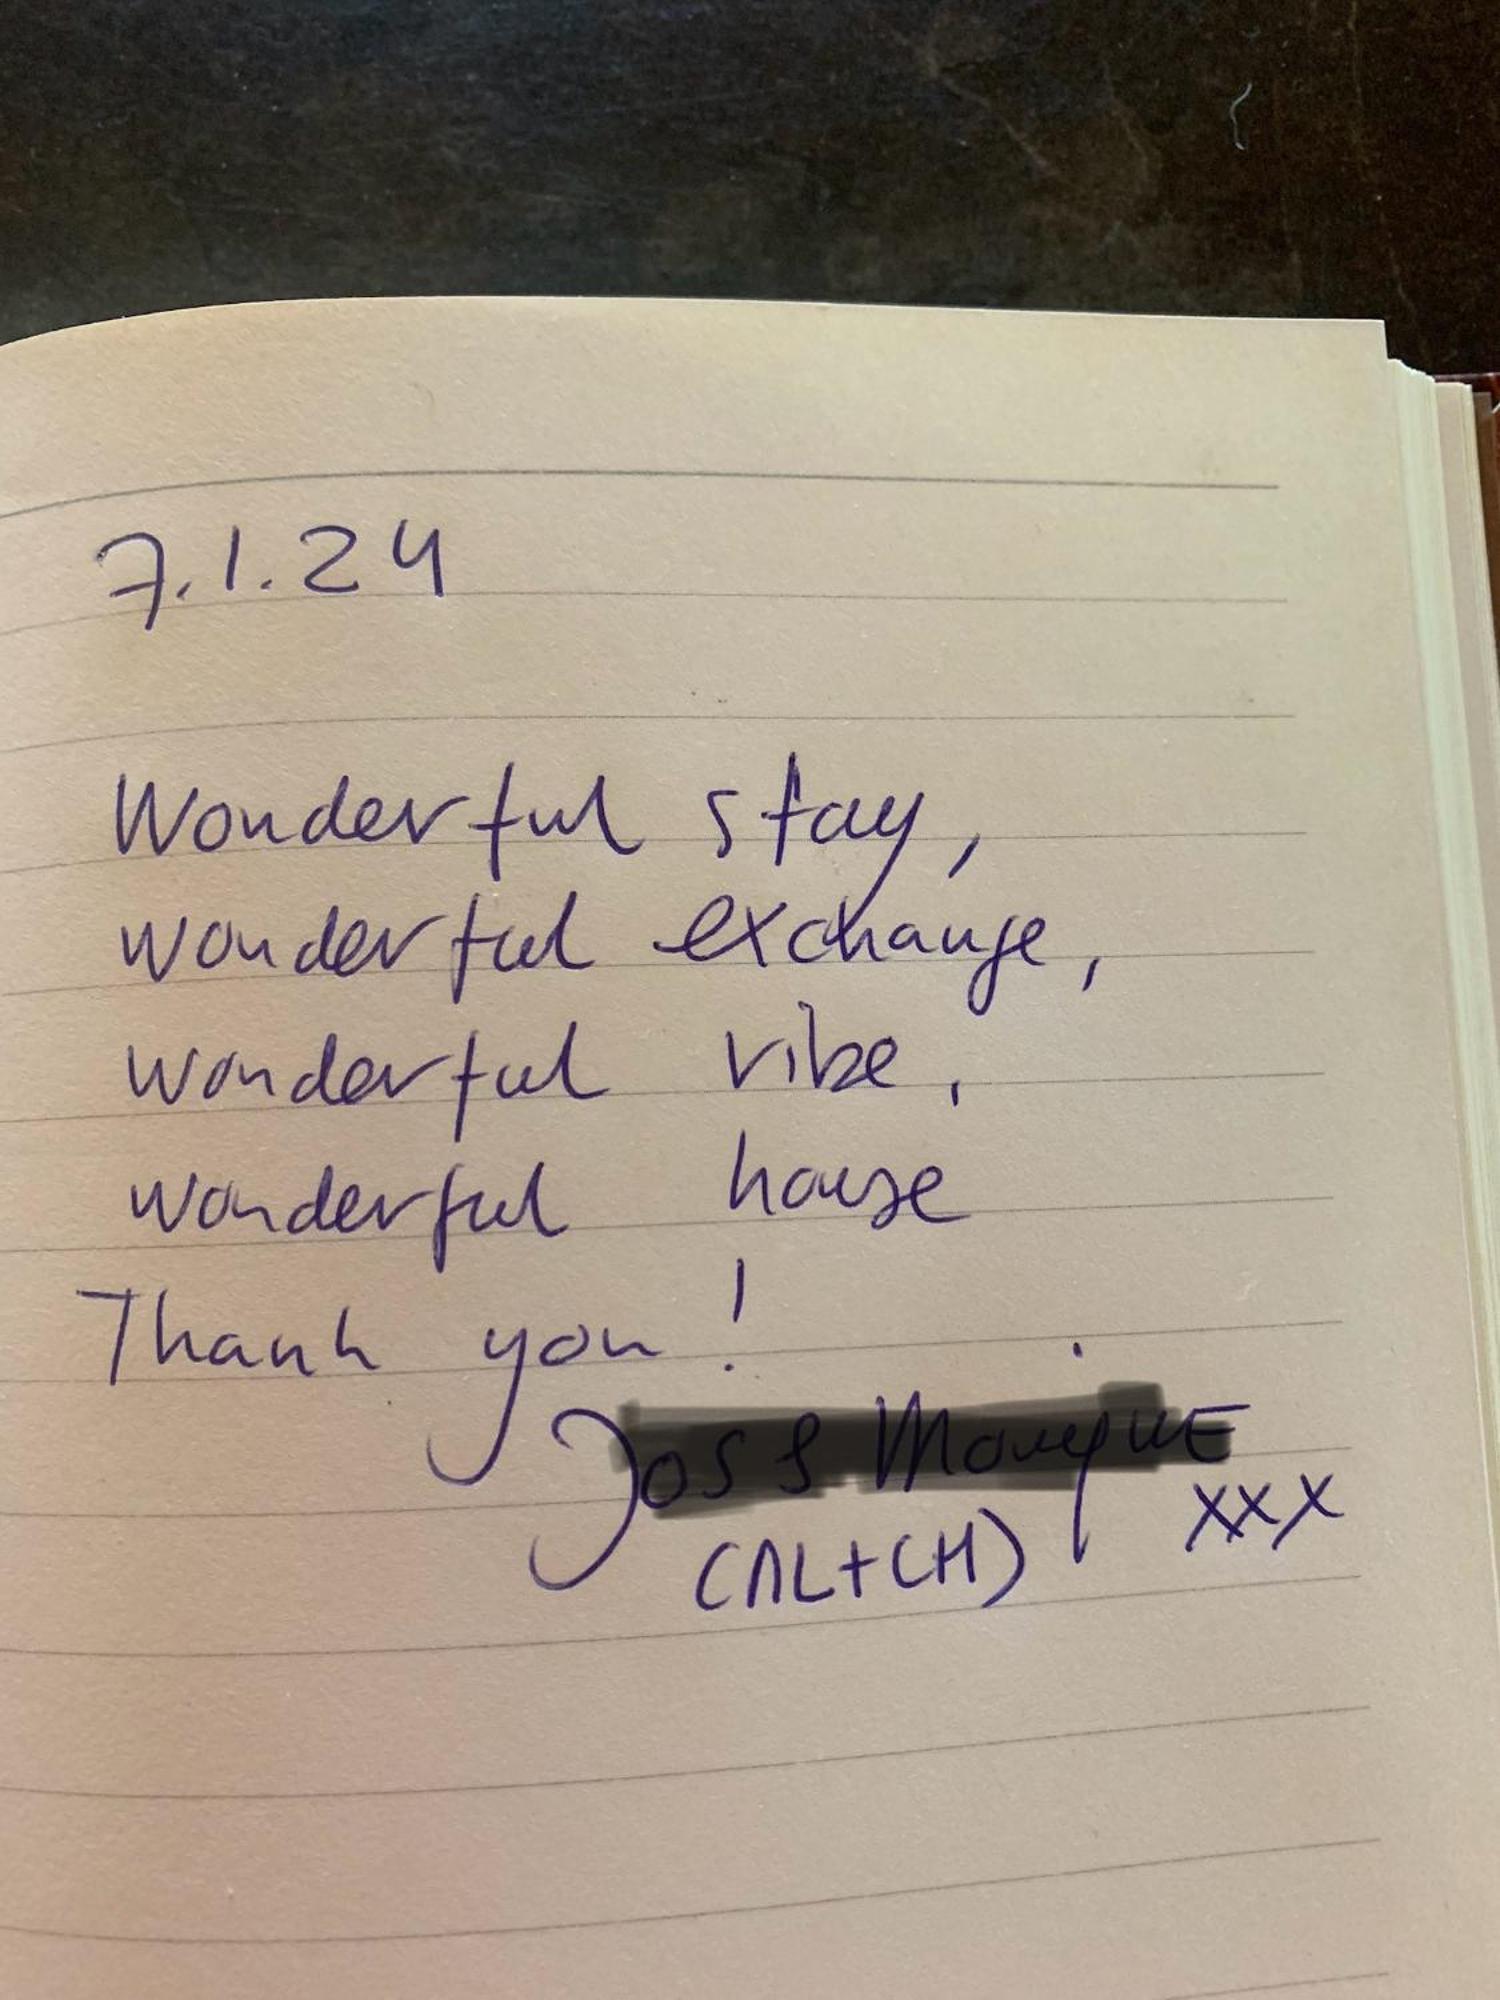 7.1.24
Wonderful stay,
wonderful exchange,
wonderful vibe,
wonderful house
Thank you!
xxx
(NL+CH)